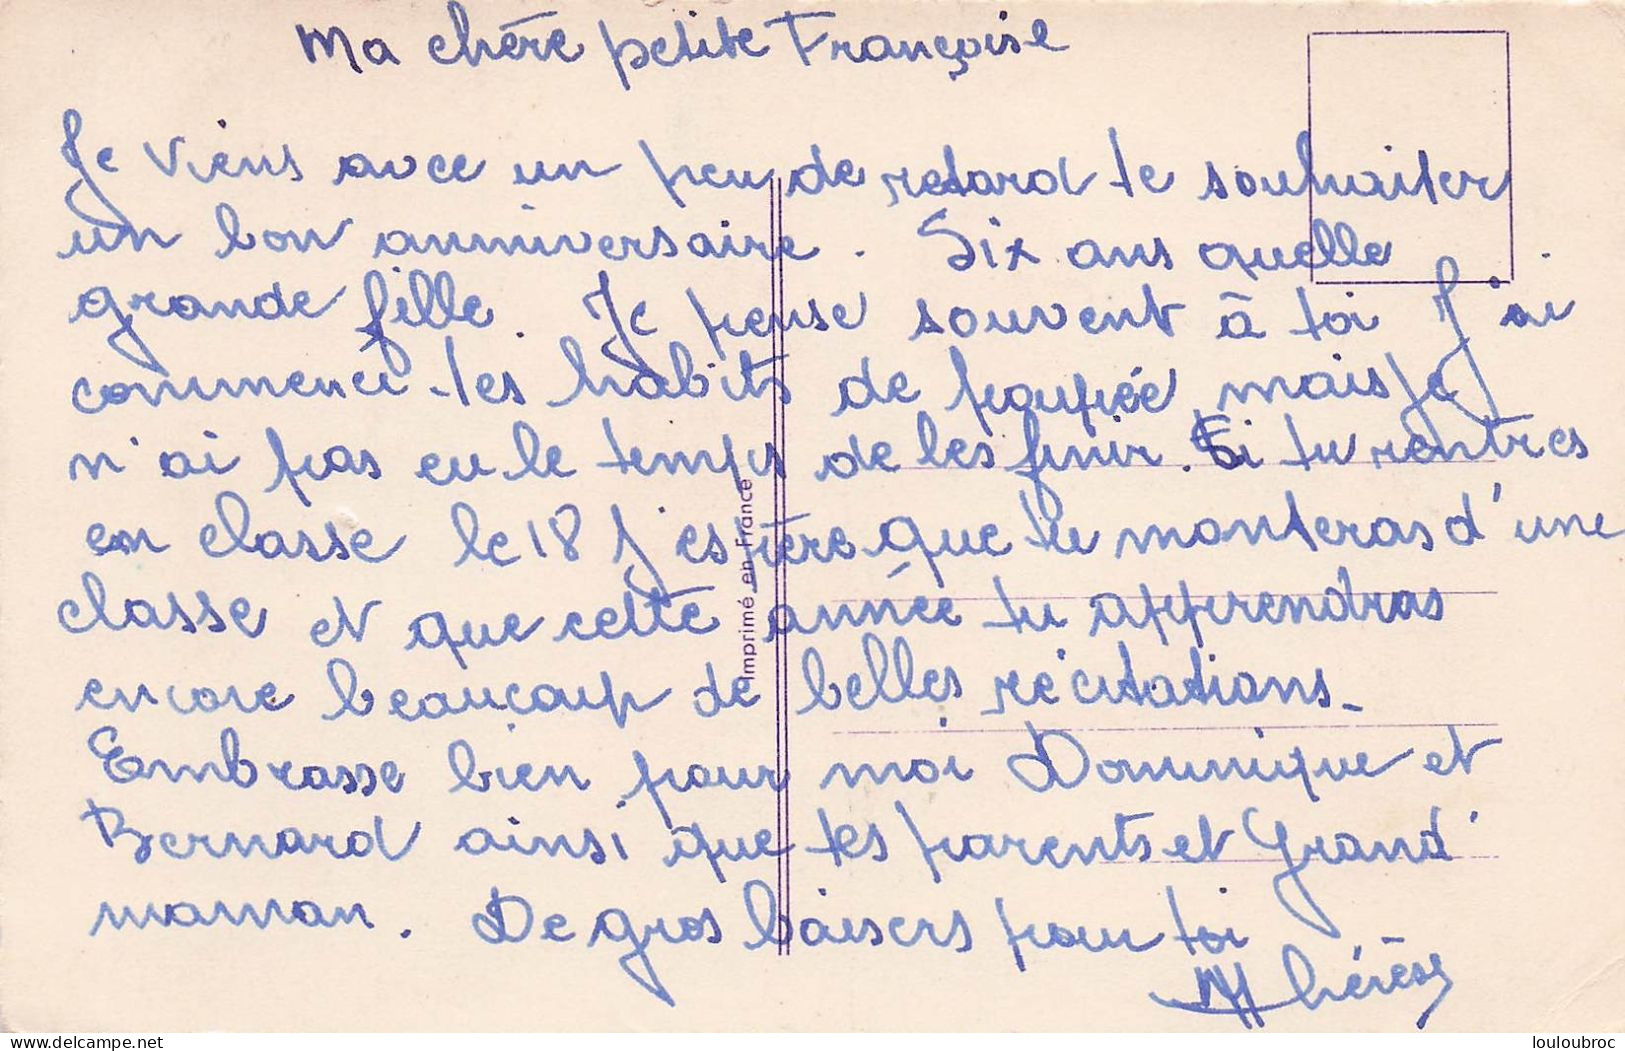 Ma chère petite Françoise
Je viens avec un peu de retard te souhaiter
un bon anniversaire. Six ans quelle
grande fille. Je pense souvent à toi J'ai
commencé tes habits de poupée mais je
n'ai pas eu le temps de les finir. Si tu rentres
en classe le 18 j'espère que tu monteras d'une
classe et que cette année tu apprendras
encore beaucoup de belles récitations_
Embrasse bien pour moi Dominique et
Bernard ainsi que tes parents et Grand'
maman. De gros baisers pour toi
Thérèse
Imprimé en France
delcampe.net
louloubroc